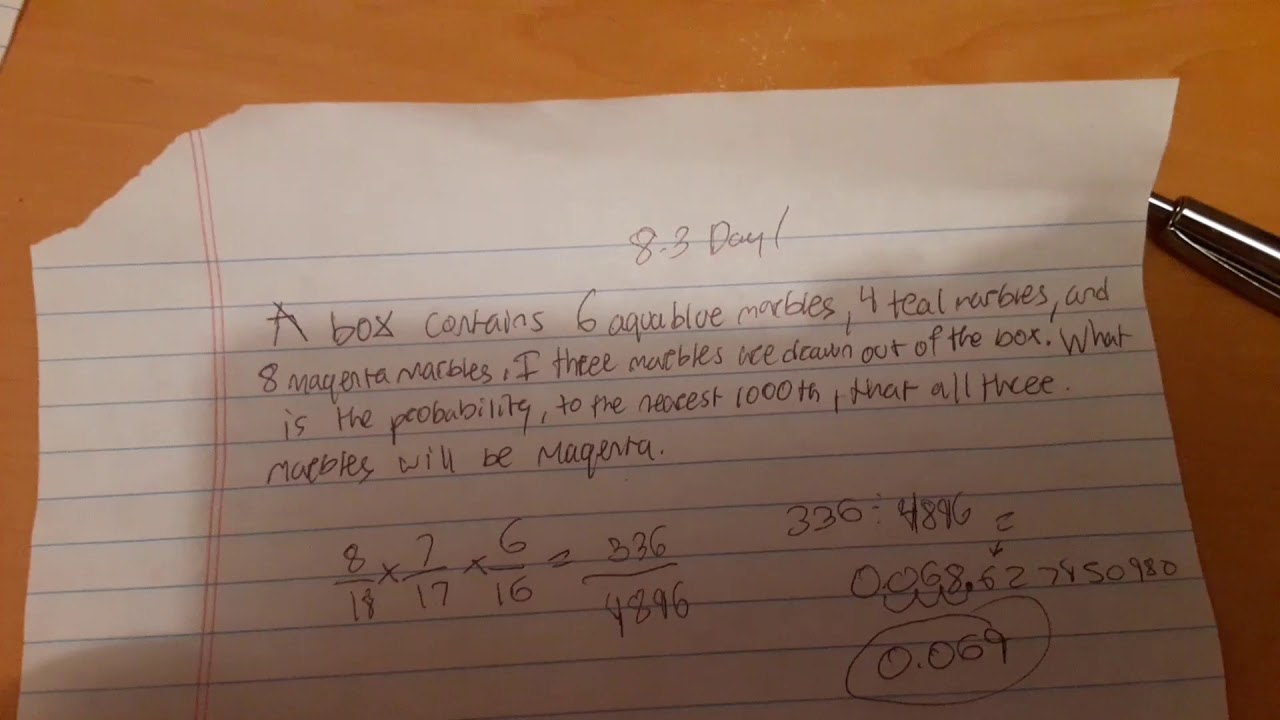 8.3 Day 1
A box contains 6 aquablue marbles, 4 teal marbles, and
8 magenta marbles. If three marbles are drawn out of the box. What
is the probability, to the nearest 1000th, that all three.
marbles will be Magenta.
8/18 × 7/17 × 6/16 = 336/4896
336 ÷ 4896 =
0.068.627450980
0.069